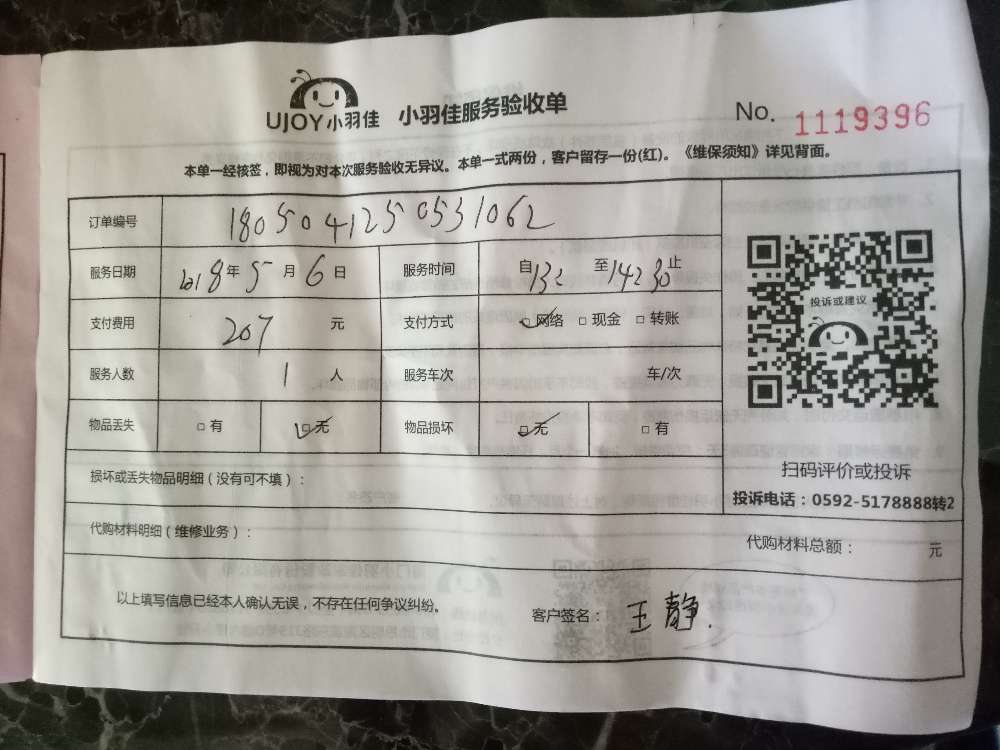 UJOY小羽佳 小羽佳服务验收单 No. 1119396
本单一经核签，即视为对本次服务验收无异议。本单一式两份，客户留存一份(红)。《维保须知》详见背面。
订单编号 1805041250531062
服务日期 2018年5月6日 服务时间 自132至14230止
支付费用 207 元 支付方式 网络 □ 现金 □ 转账
投诉或建议
服务人数 1 人 服务车次 车/次
物品丢失 □ 有 无 物品损坏 无 □ 有
损坏或丢失物品明细（没有可不填）：
扫码评价或投诉
投诉电话：0592-5178888转2
代购材料明细（维修业务）：
代购材料总额： 元
以上填写信息已经本人确认无误，不存在任何争议纠纷。 客户签名： 王静.